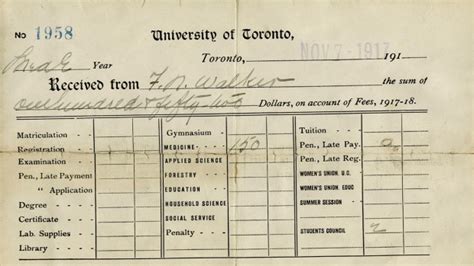 No 1958 University of Toronto,
Year Toronto, NOV 7 - 1917 191
Received from F. N. Walker the sum of
one hundred & fifty-two Dollars, on account of Fees, 1917-18.
Matriculation - Gymnasium - Tuition -
Registration - MEDICINE - 150 Pen., Late Pay.
Examination - APPLIED SCIENCE Pen., Late Reg.
Pen., Late Payment FORESTRY - WOMEN'S UNION. U.C.
" Application EDUCATION - WOMEN'S UNION. EDUC
Degree - HOUSEHOLD SCIENCE SUMMER SESSION -
Certificate - SOCIAL SERVICE
Lab. Supplies - Penalty - STUDENTS COUNCIL 2
Library -